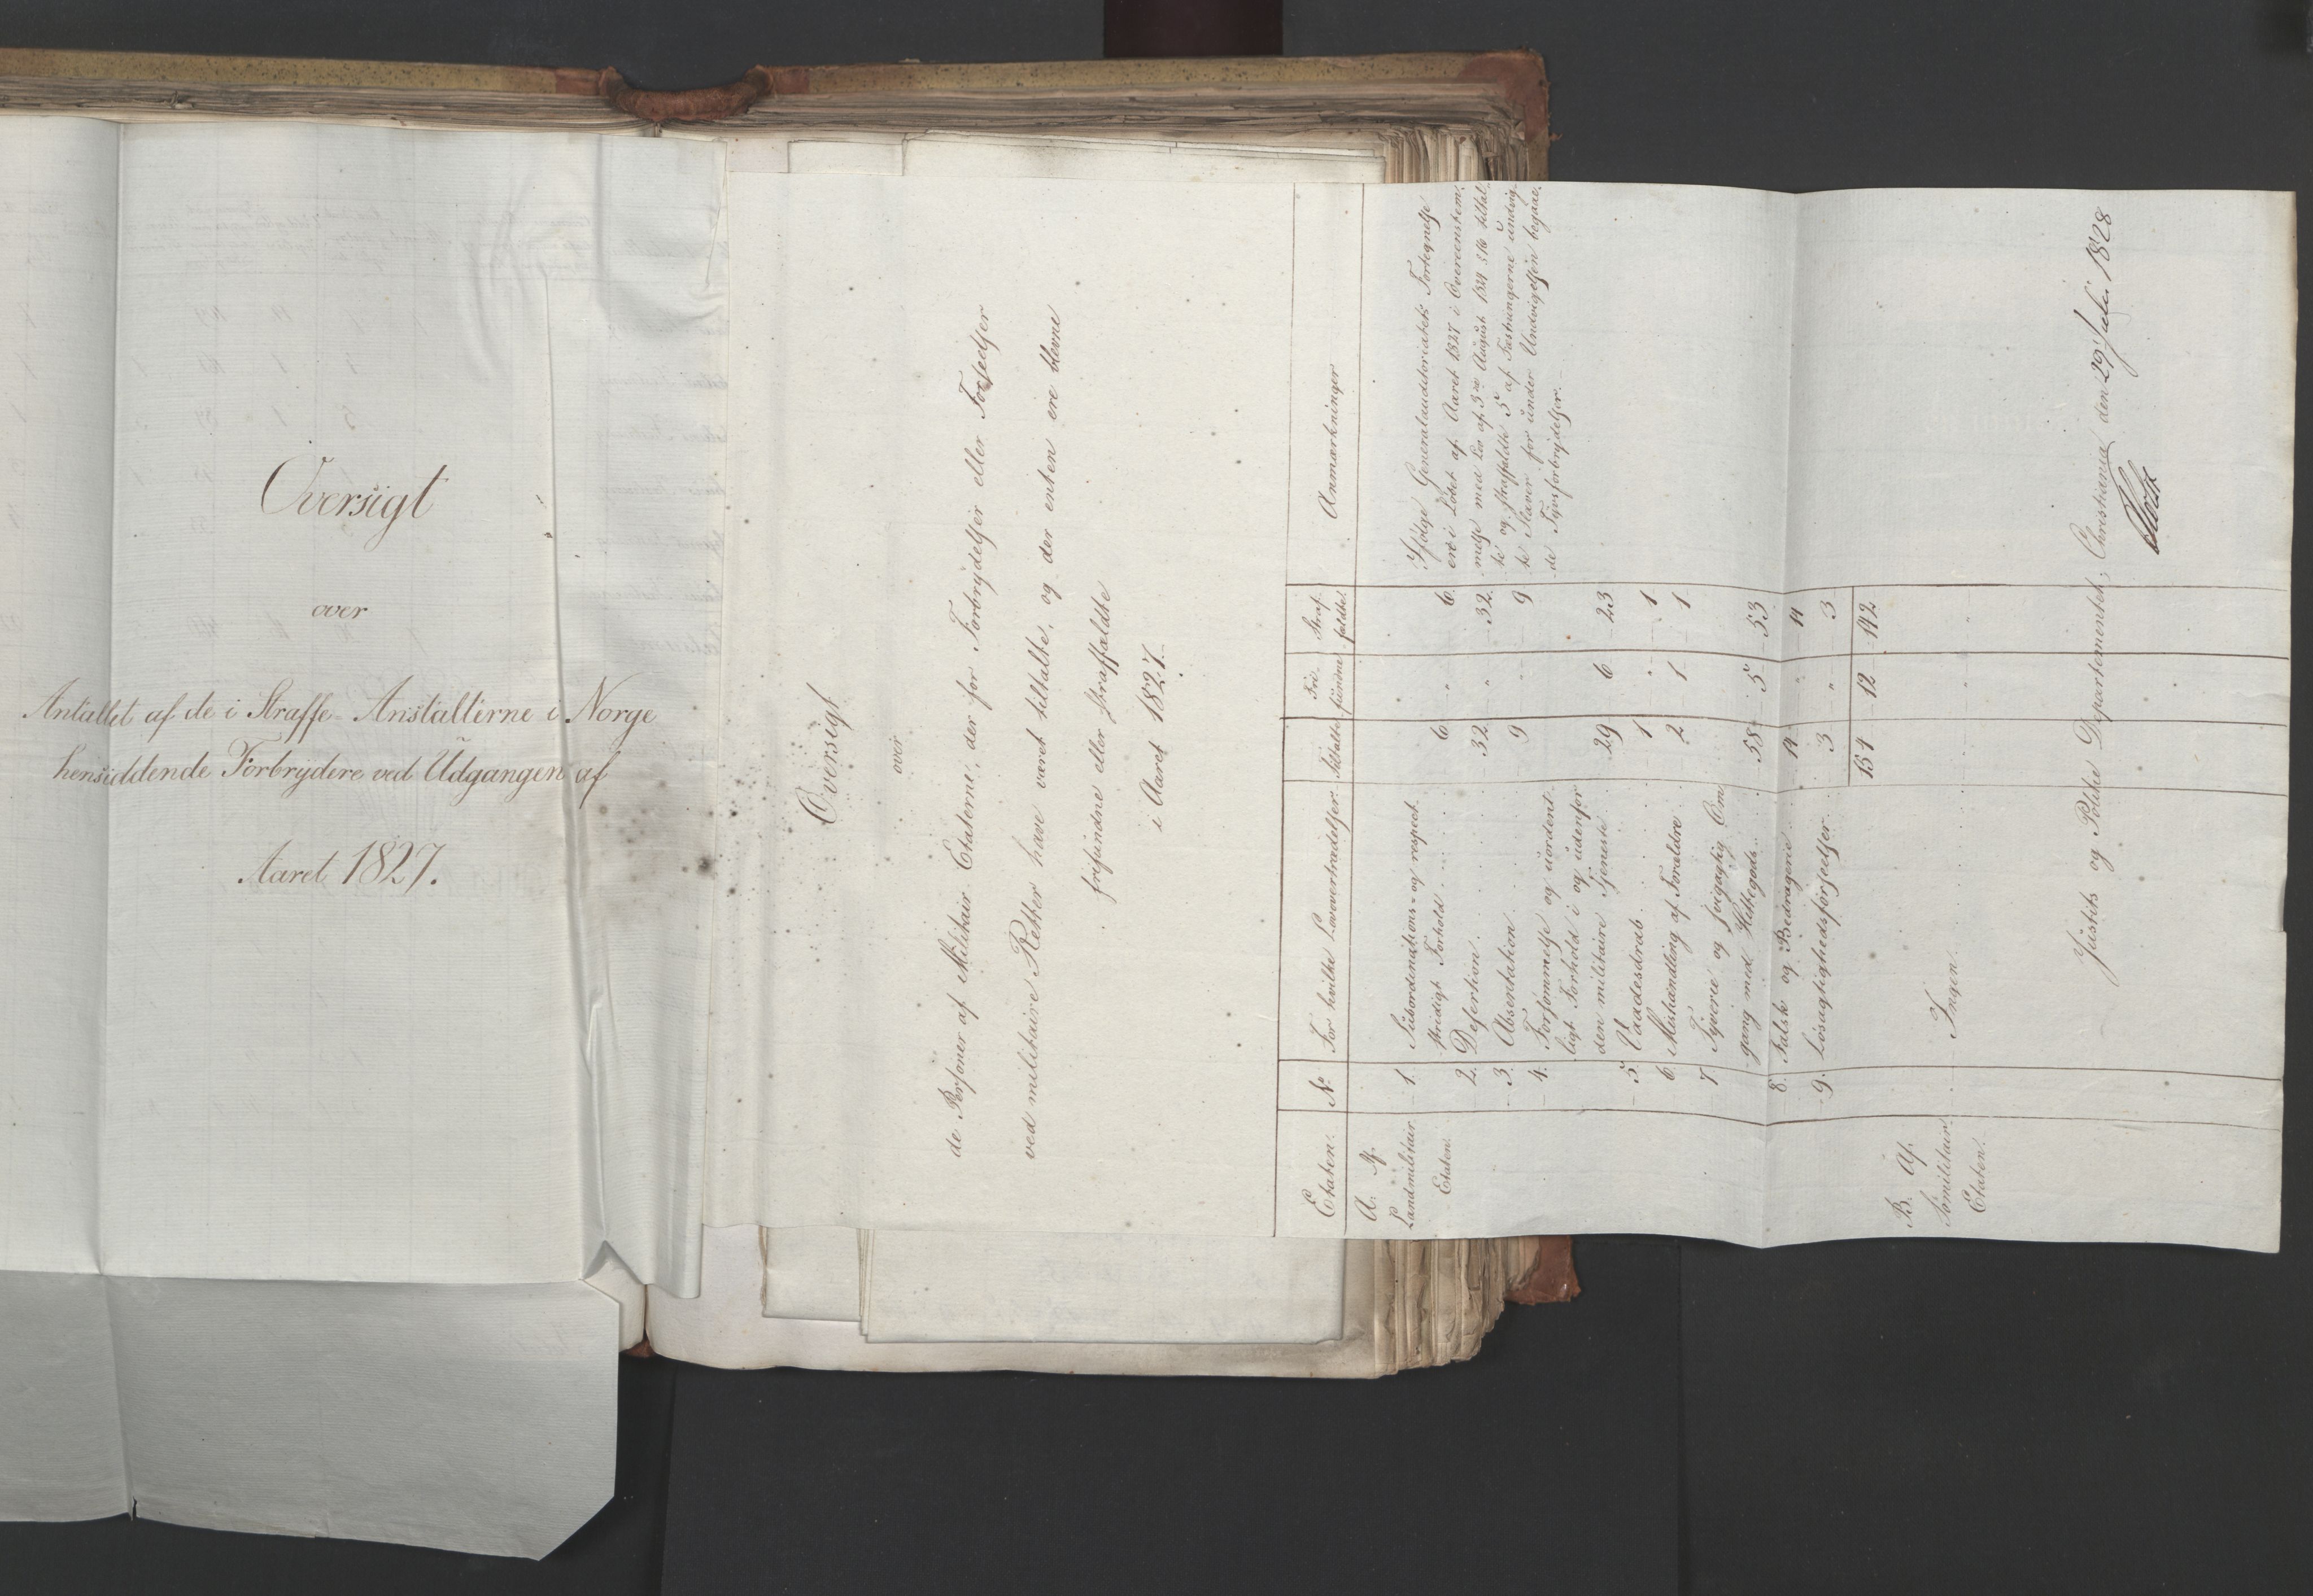 Oversigt
over
Antallet af de i Straffe-Anstalterne i Norge
hensiddende Forbrydere ved Udgangen af
Aaret 1827.
Oversigt
over
de Personer af Militair Etaterne, der for Forbrydelser eller Forseelser
ved militaire Retter have været tiltalte, og der enten ere blevne
frifundne eller straffældte
i Aaret 1827.
Etaten. No. For hvilke Lovovertrædelser. Tiltalte Fri-fundne Straf-fældte. Anmærkninger
A. Af Landmilitair Etaten.
1. Subordinations- og respect-
stridigt Forhold 6. " 6.
2. Desertion 32. " 32.
3. Absentation 9 " 9
4. Forsømmelse og uordent-
ligt Forhold i og udenfor
den militaire Tjeneste 29 6 23
5. Vaadesdrab 1 " 1
6. Mishandling af Forældre 2 1 1
7 Tyverie og svigagtig Om
gang med Hittegods 58 5 53
8. Falsk og Bedragerie 14 " 14
9. Løsagtighedsforseelser 3 " 3
154 12 142
Ifølge Generalauditoriatets Fortegnelse
ere i Løbet af Aaret 1827 i Overensstem-
melse med Lov af 3die August 1824 § 16 tiltal-
te og straffældte 5 af Fæstningerne undvig-
te Slaver for under Undvigelsen begaae-
de Tyvsforbrydelser.
B. Af
Sømilitair
Etaten. Ingen "
Justits og Politie Departementet, Christiania den 29 Juli 1828